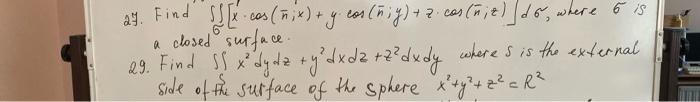 27. Find ∫∫[x·cos(n̄;x) + y·cos(n̄;y) + z·cos(n̄;z)]dσ, where σ is
σ
a closed surface.
29. Find ∫∫ x²dydz + y²dxdz + z²dxdy where s is the external
S
side of the surface of the sphere x²+y²+z² = R²